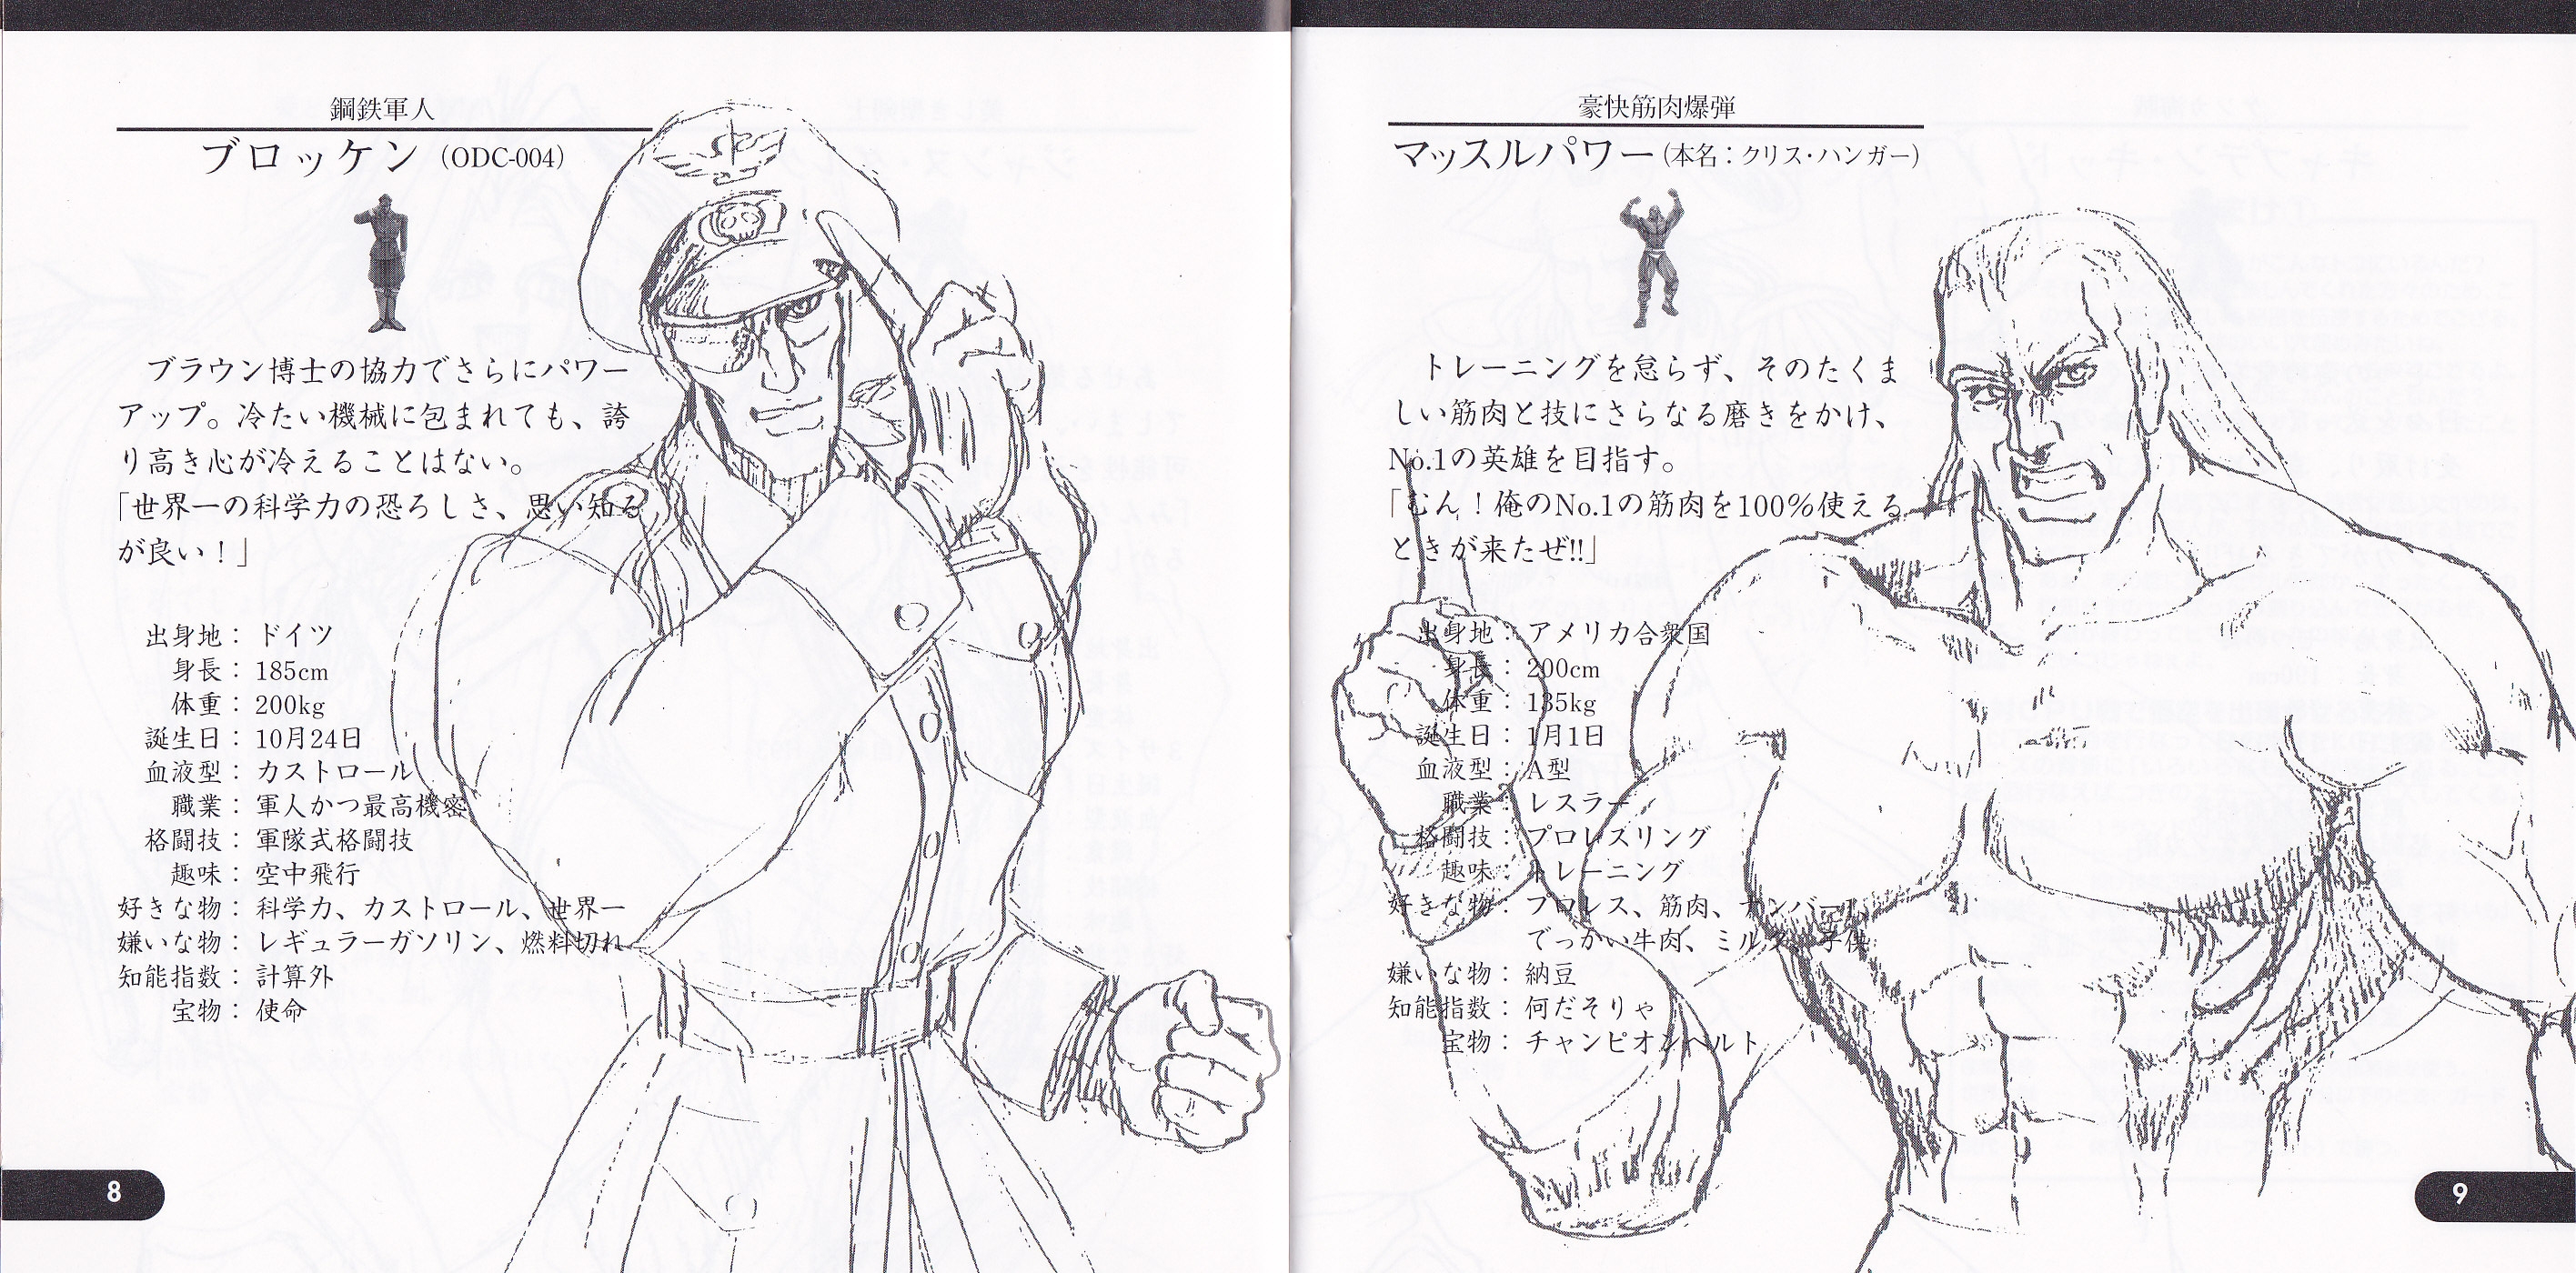 鋼鉄軍人
ブロッケン（ODC-004）
ブラウン博士の協力でさらにパワー
アップ。冷たい機械に包まれても、誇
り高き心が冷えることはない。
「世界一の科学力の恐ろしさ、思い知る
が良い！」
出身地：ドイツ
身長：185cm
体重：200kg
誕生日：10月24日
血液型：カストロール
職業：軍人かつ最高機密
格闘技：軍隊式格闘技
趣味：空中飛行
好きな物：科学力、カストロール、世界一
嫌いな物：レギュラーガソリン、燃料切れ
知能指数：計算外
宝物：使命
8
豪快筋肉爆弾
マッスルパワー（本名：クリス・ハンガー）
トレーニングを怠らず、そのたくま
しい筋肉と技にさらなる磨きをかけ、
No.1の英雄を目指す。
「むん！俺のNo.1の筋肉を100%使える
ときが来たぜ!!」
出身地：アメリカ合衆国
身長：200cm
体重：135kg
誕生日：1月1日
血液型：A型
職業：レスラー
格闘技：プロレスリング
趣味：トレーニング
好きな物：プロレス、筋肉、ナンバー1、
でっかい牛肉、ミルク、子供
嫌いな物：納豆
知能指数：何だそりゃ
宝物：チャンピオンベルト
9